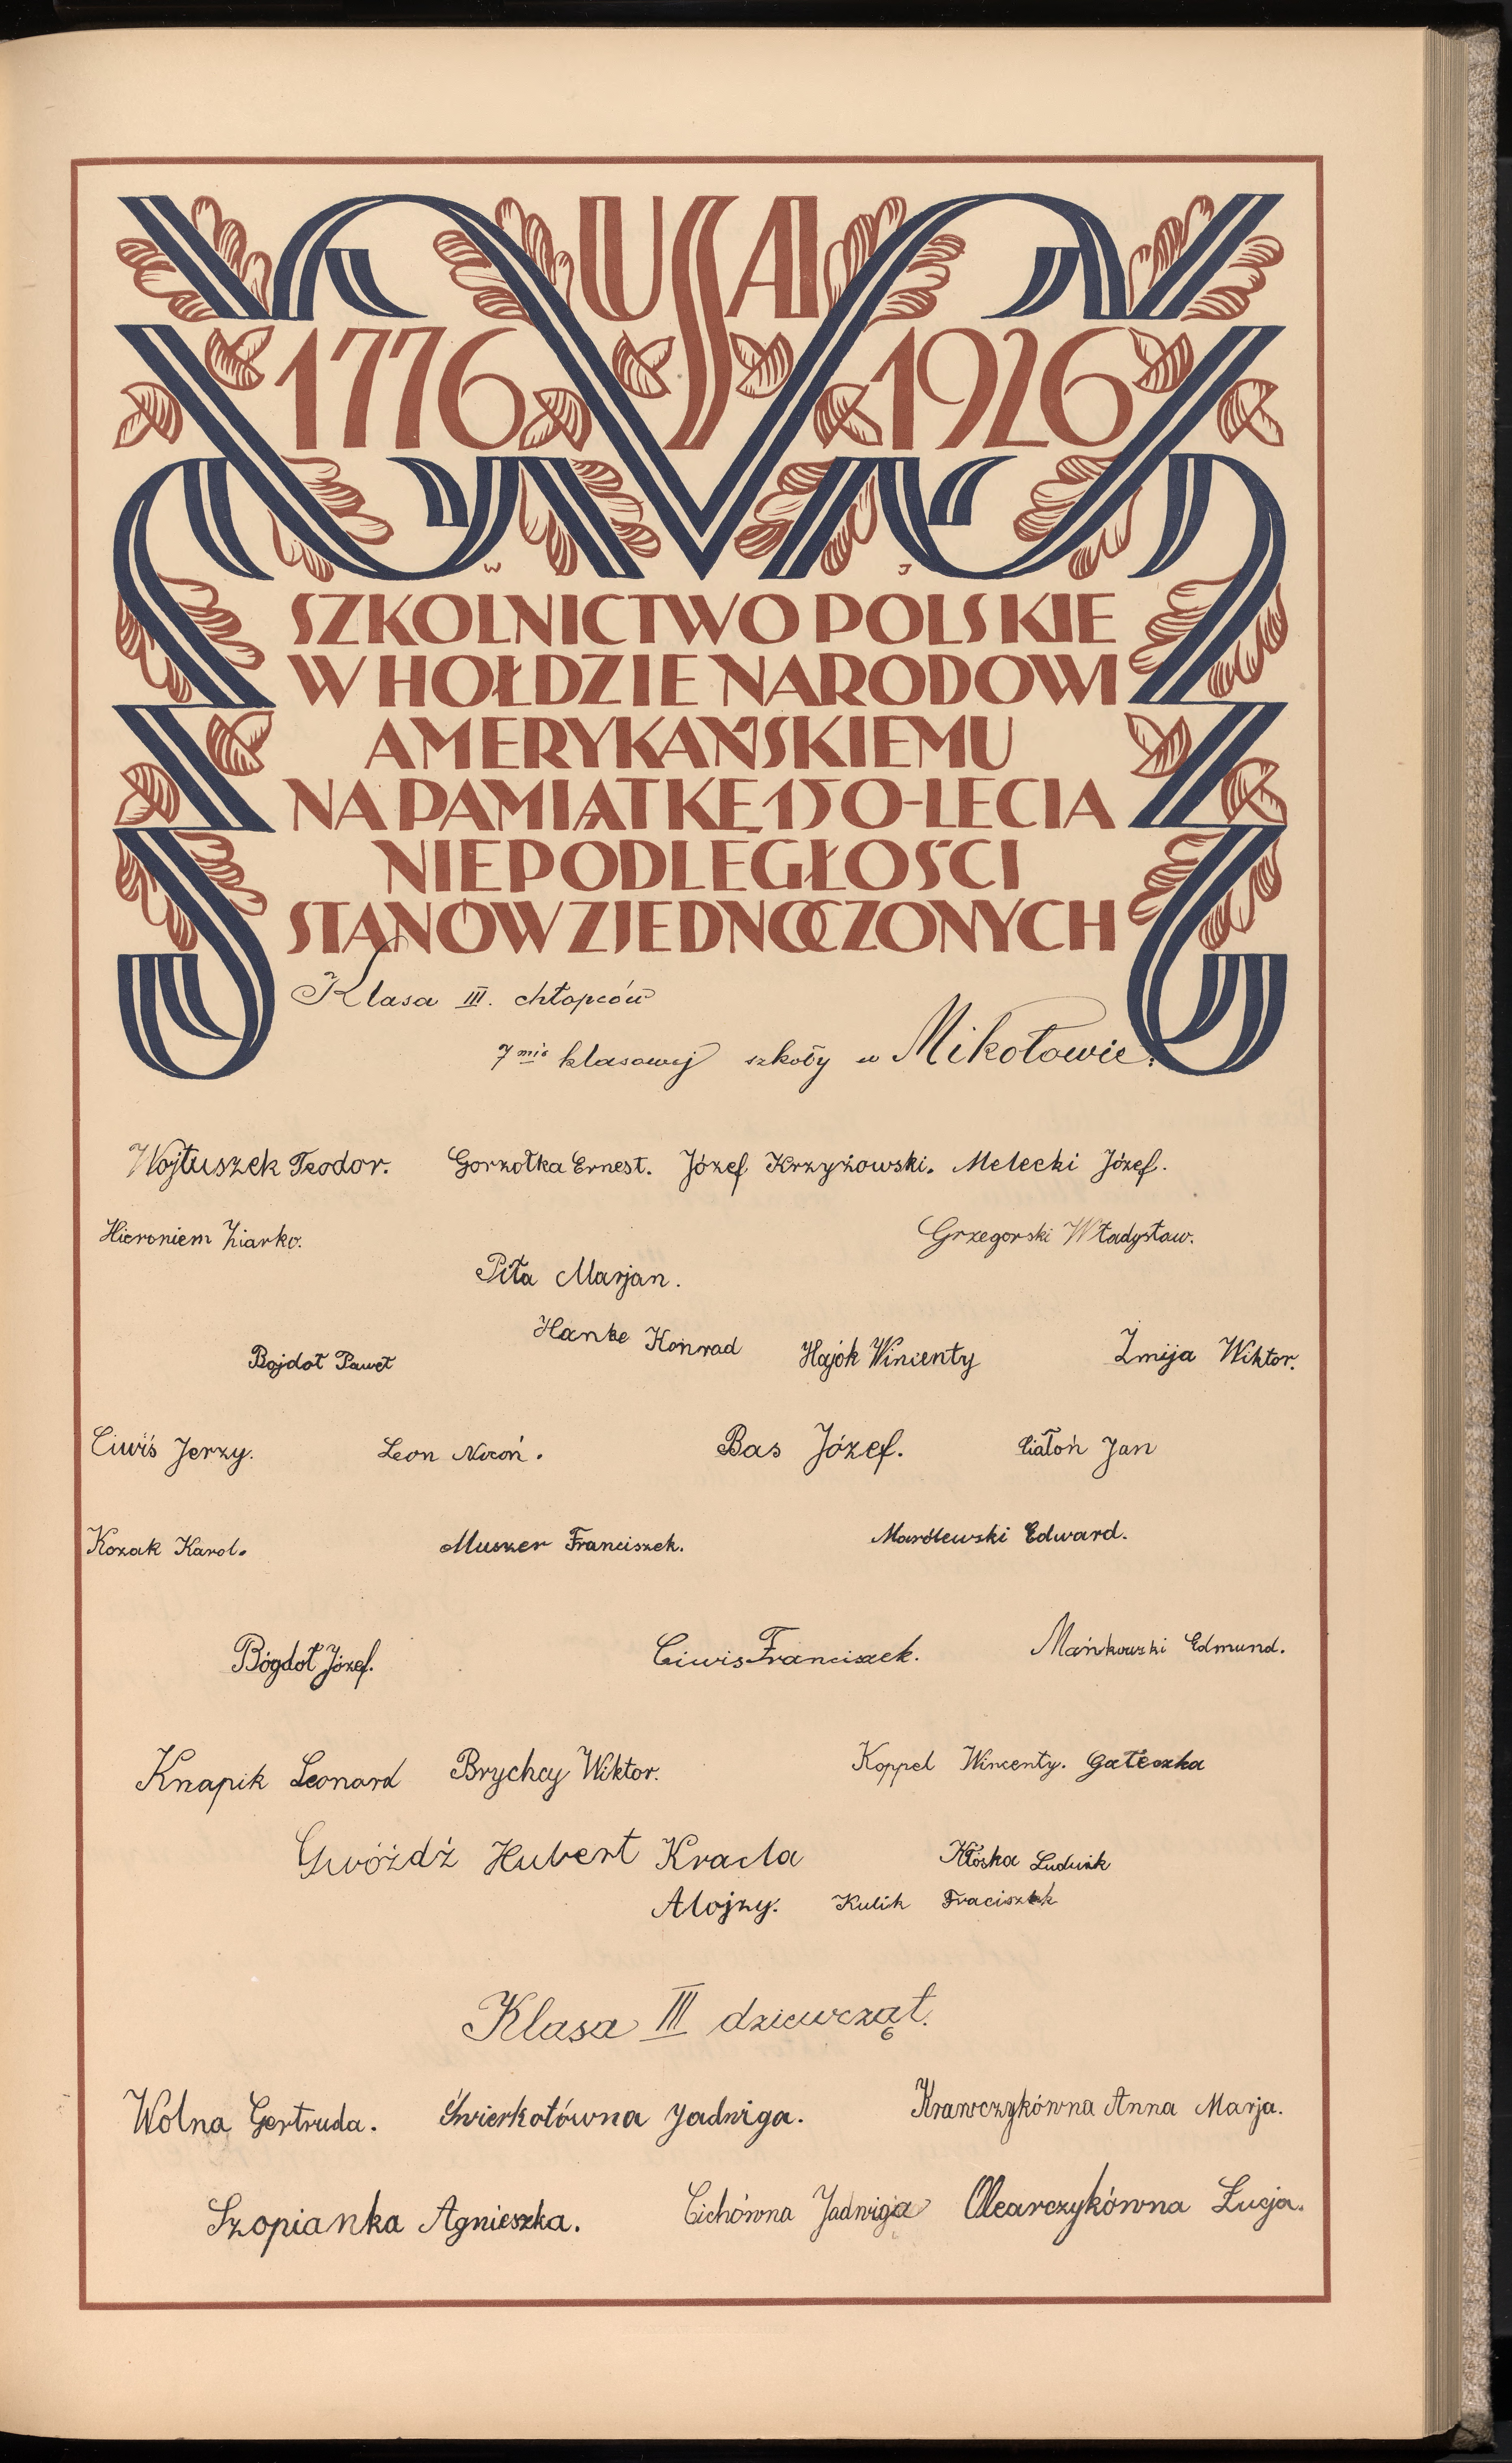 USA
1776 1926
W J
SZKOLNICTWO POLSKIE
W HOŁDZIE NARODOWI
AMERYKAŃSKIEMU
NA PAMIĄTKĘ 150-LECIA
NIEPODLEGŁOŚCI
STANÓW ZJEDNOCZONYCH
Klasa III. chłopców
7 mio klasowej szkoły w Mikołowie.
Wojtuszek Teodor. Gorzołka Ernest. Józef Krzyżowski. Melecki Józef.
Hieroniem Ziarko. Grzegorski Władysław.
Piła Marjan.
Hanke Konrad
Bojdoł Paweł Hajok Wincenty Żmija Wiktor.
Ciwiś Jerzy. Leon Nocoń. Bas Józef. Ciałoń Jan
Kozak Karol. Muszer Franciszek. Marólewski Edward.
Bógdoł Józef. Ciwis Franciszek. Mańkowski Edmund.
Knapik Leonard Brychcy Wiktor. Koppel Wincenty. Gałeczka
Gwóźdź Hubert Kracla Kłoska Ludwik
Alojzy. Kulik Fraciszek
Klasa III dziewcząt.
Wolna Gertruda. Świerkotówna Jadwiga. Krawczykówna Anna Marja.
Szopianka Agnieszka. Cichówna Jadwiga Olearczykówna Łucja.